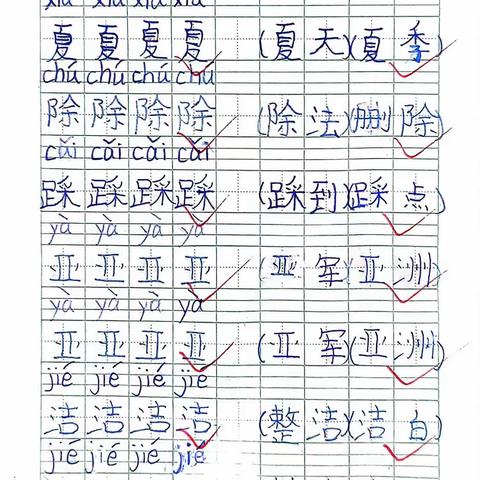 xià xià xià xià
夏 夏 夏 夏 (夏天)(夏季)
chú chú chú chú
除 除 除 除 (除法)(删除)
cǎi cǎi cǎi cǎi
踩 踩 踩 踩 (踩到)(踩点)
yà yà yà yà
亚 亚 亚 亚 (亚军)(亚洲)
yà yà yà yà
亚 亚 亚 亚 (亚军)(亚洲)
jié jié jié jié
洁 洁 洁 洁 (整洁)(洁白)
jié jié jié jié